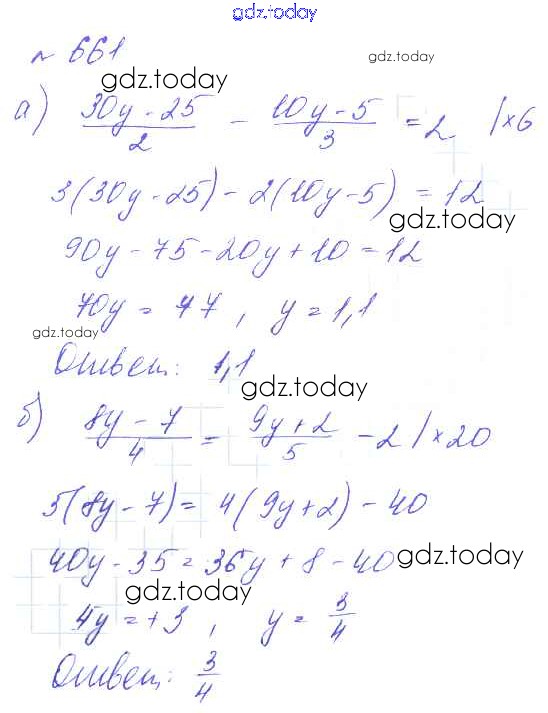 gdz.today
№ 661
gdz.today
gdz.today
а) (30y - 25)/2 - (10y - 5)/3 = 2 | ×6
3(30y - 25) - 2(10y - 5) = 12
gdz.today
90y - 75 - 20y + 10 = 12
70y = 77, y = 1,1
gdz.today
Ответ: 1,1
gdz.today
б) (8y - 7)/4 = (9y + 2)/5 - 2 | ×20
5(8y - 7) = 4(9y + 2) - 40
40y - 35 = 36y + 8 - 40
gdz.today
gdz.today
4y = +3, y = 3/4
Ответ: 3/4